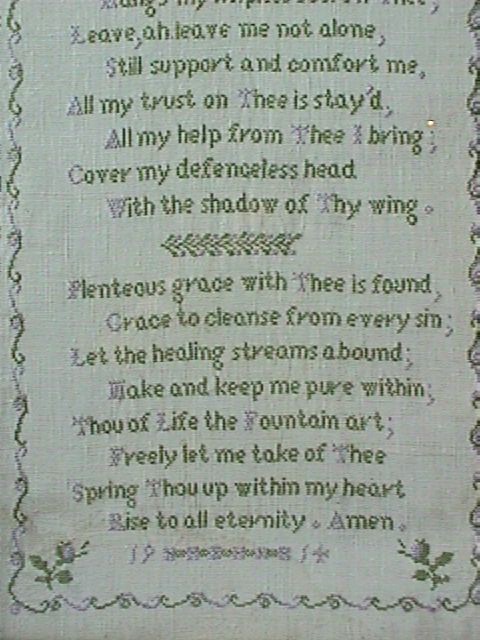 Hangs my helpless soul on Thee;
Leave, ah. leave me not alone,
Still support and comfort me,
All my trust on Thee is stay'd,
All my help from Thee I bring;
Cover my defenceless head
With the shadow of Thy wing.
Plenteous grace with Thee is found,
Grace to cleanse from every sin;
Let the healing streams abound;
Make and keep me pure within;
Thou of Life the Fountain art;
Freely let me take of Thee
Spring Thou up within my heart
Rise to all eternity. Amen.
19 14